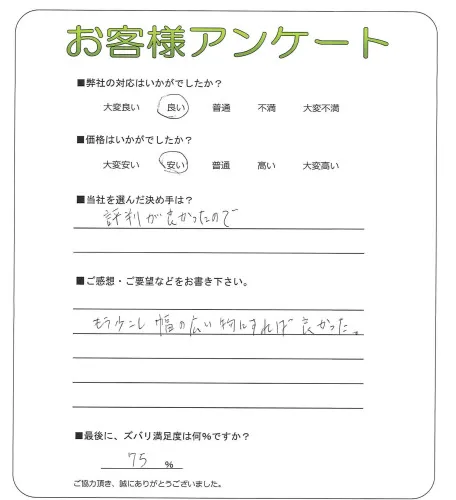 お客様アンケート
■弊社の対応はいかがでしたか？
大変良い 良い 普通 不満 大変不満
■価格はいかがでしたか？
大変安い 安い 普通 高い 大変高い
■当社を選んだ決め手は？
評判が良かったので
■ご感想・ご要望などをお書き下さい。
もう少し幅の広い物にすれば良かった。
■最後に、ズバリ満足度は何%ですか？
75 %
ご協力頂き、誠にありがとうございました。